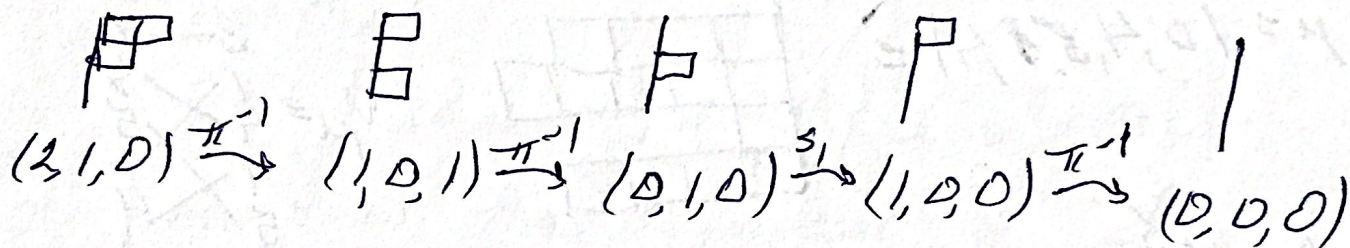 (2,1,0) π⁻¹→ (1,0,1) π⁻¹→ (0,1,0) s₁→ (1,0,0) π⁻¹→ (0,0,0)